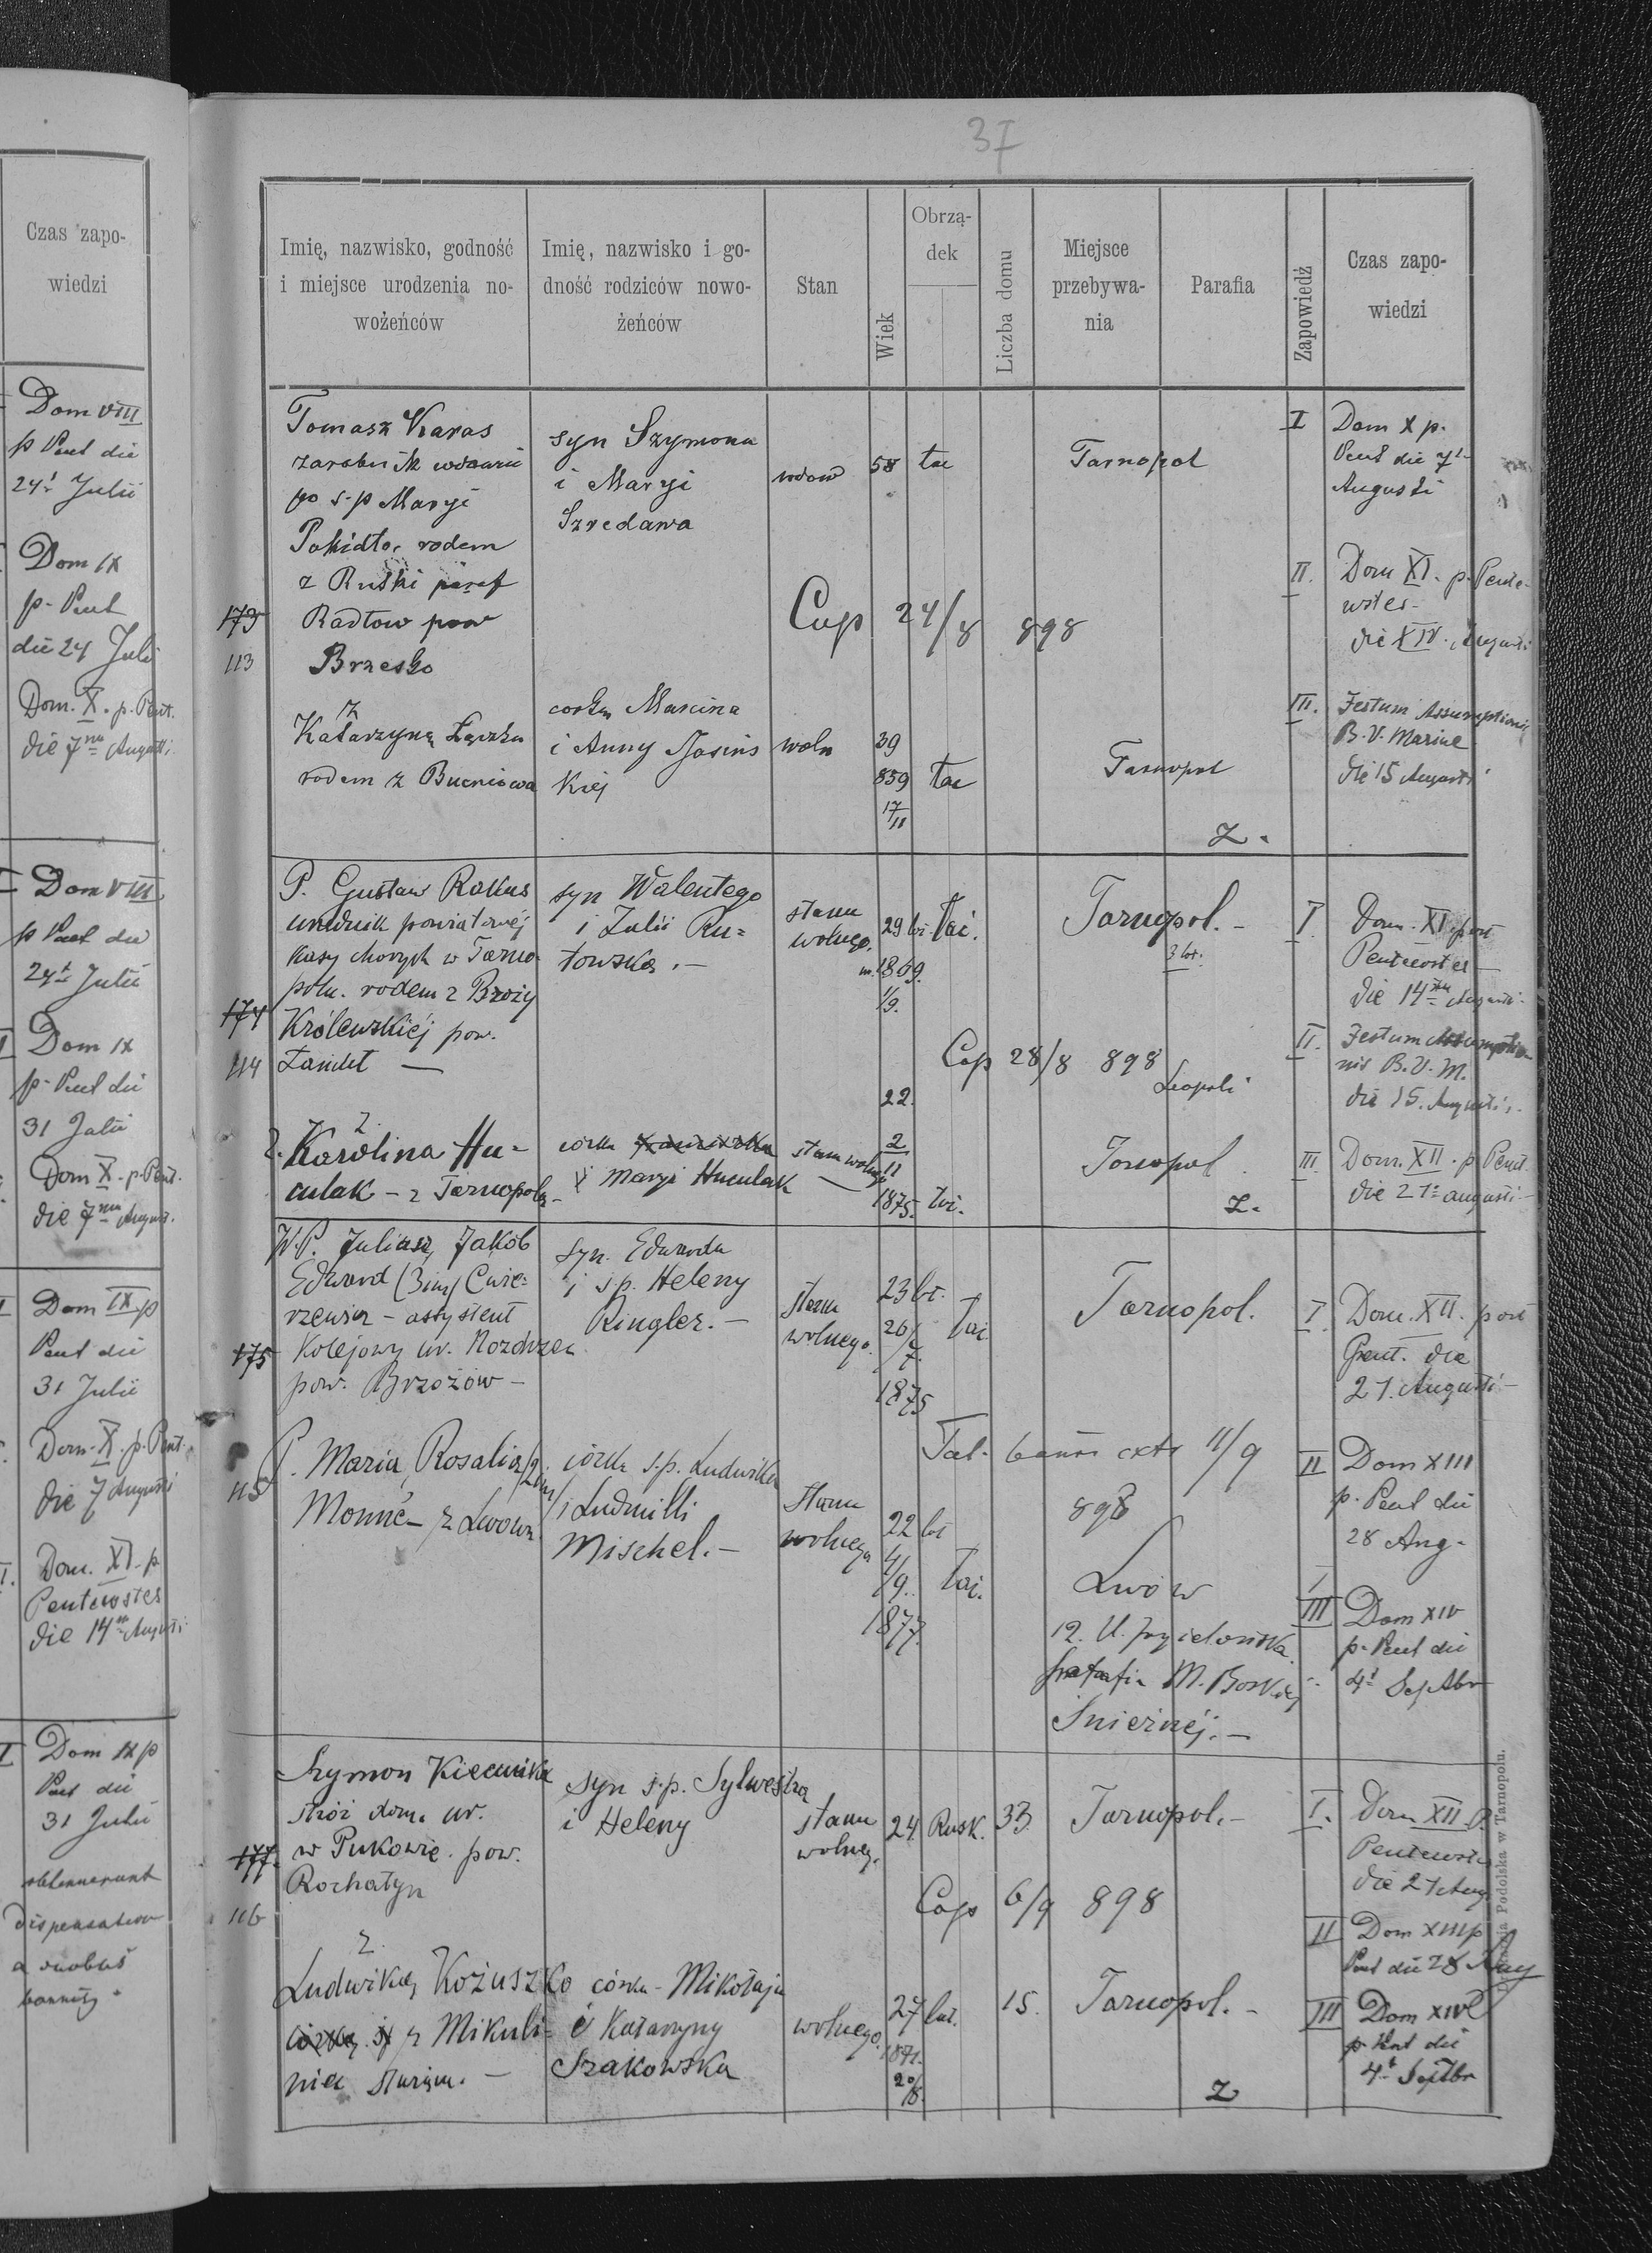 Czas zapo-
wiedzi
Dom VIII
p Pent die
24t Julii
Dom IX
p. Pent
die 24 Juli
Dom. X. p. Pent.
die 7ma Augusti.
Dom VIII
p Pent die
24t Julii
Dom IX
p. Pent die
31 Julii
Dom X. p. Pent.
die 7ma August.
Dom IX p
Pent die
31 Julii
Dom. X. p. Pent.
die 7 Augusti
Dom. XI. p
Pentecostes
die 14ta Augusti
Dom IX p
Pent die
31 Julii
37
Imię, nazwisko, godność
i miejsce urodzenia no-
wożeńców
Imię, nazwisko i go-
dność rodziców nowo-
żeńców
Stan
Wiek
Obrzą-
dek
Liczba domu
Miejsce
przebywa-
nia
Parafia
Zapowiedź
Czas zapo-
wiedzi
173
113
Tomasz Karas
zarobnik
po s.p Maryi
rodem
z Rudki paraf
Radłow pow
Brzesko
syn Szymona
i Maryi
Szredawa
wdow
58
łac
Tarnopol
Cop 24/8 898
z
Katarzyną Łączka
rodem z Bucniowa
corka Marcina
i Anny Jasins
kiej
woln
39
859
17/11
łac
Tarnopol
Z.
I Dom X p.
Pent die 7t
Augusti
II. Dom XI. p. Pente-
costes-
die XIV. Augusti
III. Festum Assumptionis
B. V. Mariae
die 15 Augusti
174
114
P. Gustaw Rakus
urzędnik powiatowej
kasy chorych w Tarno-
polu. rodem z Brozy
Królewskiéj pow.
Łańcut —
syn Walentego
i Julii Ru=
towska. —
stanu
wolnego.
29 lat
1869.
1/9.
łac.
Tarnopol. -
Cop 28/8 898
Leopoli
z
Karolina Hu=
culak - z Tarnopola -
córka
i Maryi Huculak
stanu wolnego
22.
2
11
1875.
Tarnopol
Z.
I. Dom. XI. post
Pentecostes —
die 14ta Augusti.
II. Festum Assumptio-
nis B. V. M.
die 15. Augusti.
III. Dom. XII. p Pent.
die 21 augusti. -
175
115
W.P. Juliusz, Jakób
Edward (3im)
assystent
Kolejowy ur. Nozdrzec
pow. Brzozów —
syn. Edwarda
i s.p. Heleny
Ringler. —
Stanu
wolnego.
23 lat.
26/7.
1875
łac
Tarnopol.
11/9
898
P. Maria, Rosalia
Monné - z Lwowa
córka s.p. Ludwika
i Ludmilli
Mischel. —
Stanu
wolnego
22 lat
4/9.
1877.
łac.
Lwów
12. U.
parafia M. Boskiej
Śnieżnéj. —
I. Dom. XII. post
Pent. die
21. Augusti -
II Dom XIII
p. Pent die
28 Aug-
III Dom XIV
p. Pent die
4t Septbr
177.
116
Szymon
stróż dom. ur.
w Pukowie. pow.
Rochatyn
syn s.p. Sylwestra
i Heleny
stanu
wolneg.
24
Rusk.
33
Tarnopol. -
Cop 6/9 898
z
Ludwiką Kożuszko
z Mikuli=
niec
córka - Mikołaja
i Katarzyny
Szakowska
wolnego.
27 lat.
1871.
20/8.
15.
Tarnopol. -
Z
I. Dom XII p.
Pentecostes
die 21 Aug
II Dom XIII p
Pent die 28 Aug
III Dom XIV
p. Pent die
4t Septbr
Podolska w Tarnopolu.